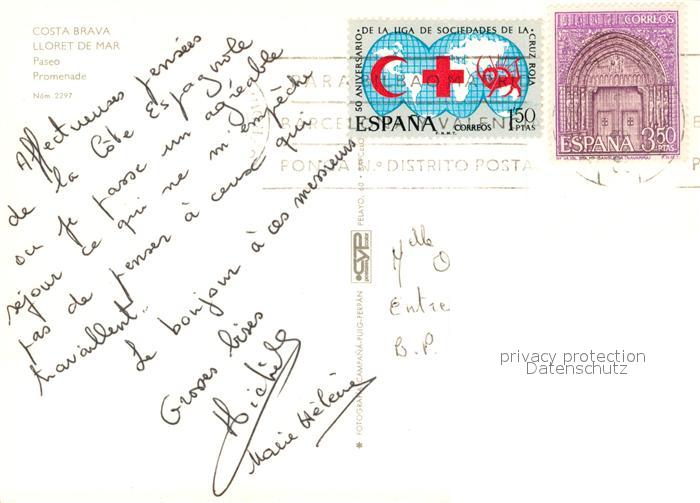 COSTA BRAVA
LLORET DE MAR
Paseo
Promenade
Núm. 2297
Affectueuses pensées
de la Côte Espagnole
où je passe un agréable
séjour ce qui ne m'empêche
pas de penser à ceux qui
travaillent"
Le bonjour à ces messieurs
Grosses bises
Michèle
Marie Hélène
50 ANIVERSARIO DE LA LIGA DE SOCIEDADES DE LA CRUZ ROJA
ESPAÑA CORREOS 1'50 PTAS
F.N.M.T.
CORREOS
ESPAÑA 3'50 PTAS
PARA BILBAO MADRID
BARCELONA VALENCIA
PONGA N.º DISTRITO POSTAL
PELAYO, 60 - BARCELONA
CYP
FOTOGRAFÍA CAMPAÑÁ-PUIG-FERRÁN
Mlle
O
Entre
B.P.
privacy protection
Datenschutz